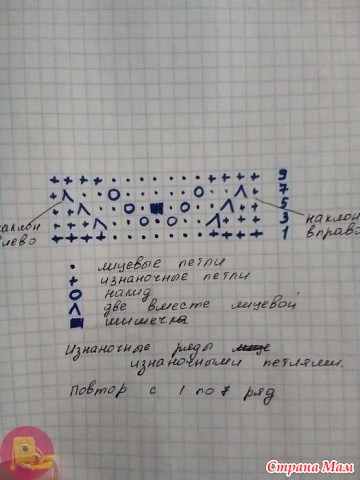 9
7
5
3
1
аклон
лево
наклон
вправо
лицевые петли
изнаночные петли
накид
две вместе лицевой
шишечка
Изнаночные ряды
изнаночными петлями.
Повтор с 1 по 7 ряд
Страна Мам